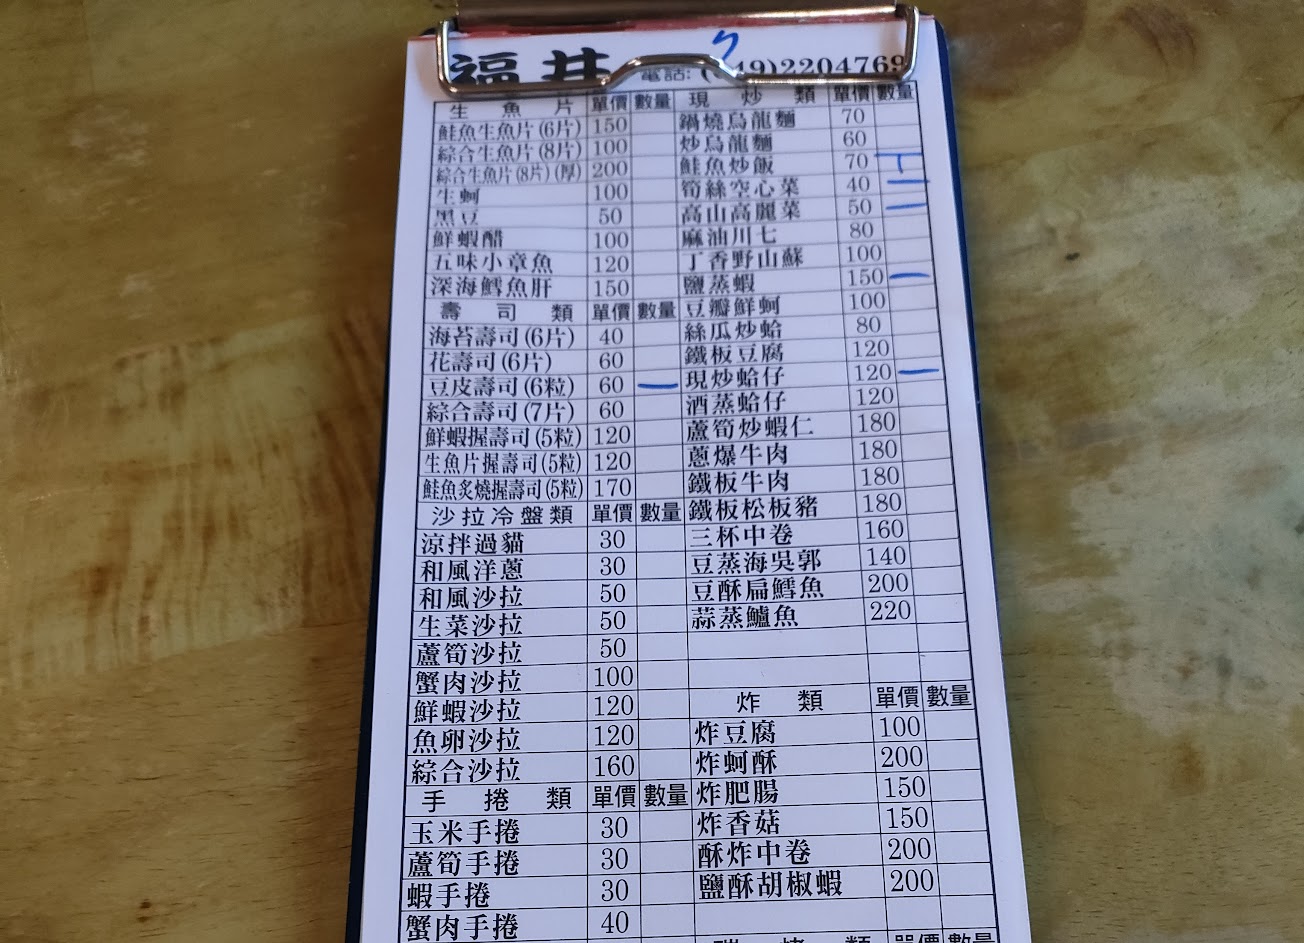 福井 電話: ( 49)2204769
生魚片 單價 數量
鮭魚生魚片(6片) 150
綜合生魚片(8片) 100
綜合生魚片(8片)(厚) 200
生蚵 100
黑豆 50
鮮蝦醋 100
五味小章魚 120
深海鱈魚肝 150
壽司類 單價 數量
海苔壽司(6片) 40
花壽司(6片) 60
豆皮壽司(6粒) 60 一
綜合壽司(7片) 60
鮮蝦握壽司(5粒) 120
生魚片握壽司(5粒) 120
鮭魚炙燒握壽司(5粒) 170
沙拉冷盤類 單價 數量
涼拌過貓 30
和風洋蔥 30
和風沙拉 50
生菜沙拉 50
蘆筍沙拉 50
蟹肉沙拉 100
鮮蝦沙拉 120
魚卵沙拉 120
綜合沙拉 160
手捲類 單價 數量
玉米手捲 30
蘆筍手捲 30
蝦手捲 30
蟹肉手捲 40
現炒類 單價 數量
鍋燒烏龍麵 70
炒烏龍麵 60
鮭魚炒飯 70
筍絲空心菜 40 一
高山高麗菜 50 一
麻油川七 80
丁香野山蘇 100
鹽蒸蝦 150 一
豆瓣鮮蚵 100
絲瓜炒蛤 80
鐵板豆腐 120
現炒蛤仔 120 一
酒蒸蛤仔 120
蘆筍炒蝦仁 180
蔥爆牛肉 180
鐵板牛肉 180
鐵板松板豬 180
三杯中卷 160
豆蒸海吳郭 140
豆酥扁鱈魚 200
蒜蒸鱸魚 220
炸類 單價 數量
炸豆腐 100
炸蚵酥 200
炸肥腸 150
炸香菇 150
酥炸中卷 200
鹽酥胡椒蝦 200
類 單價 數量